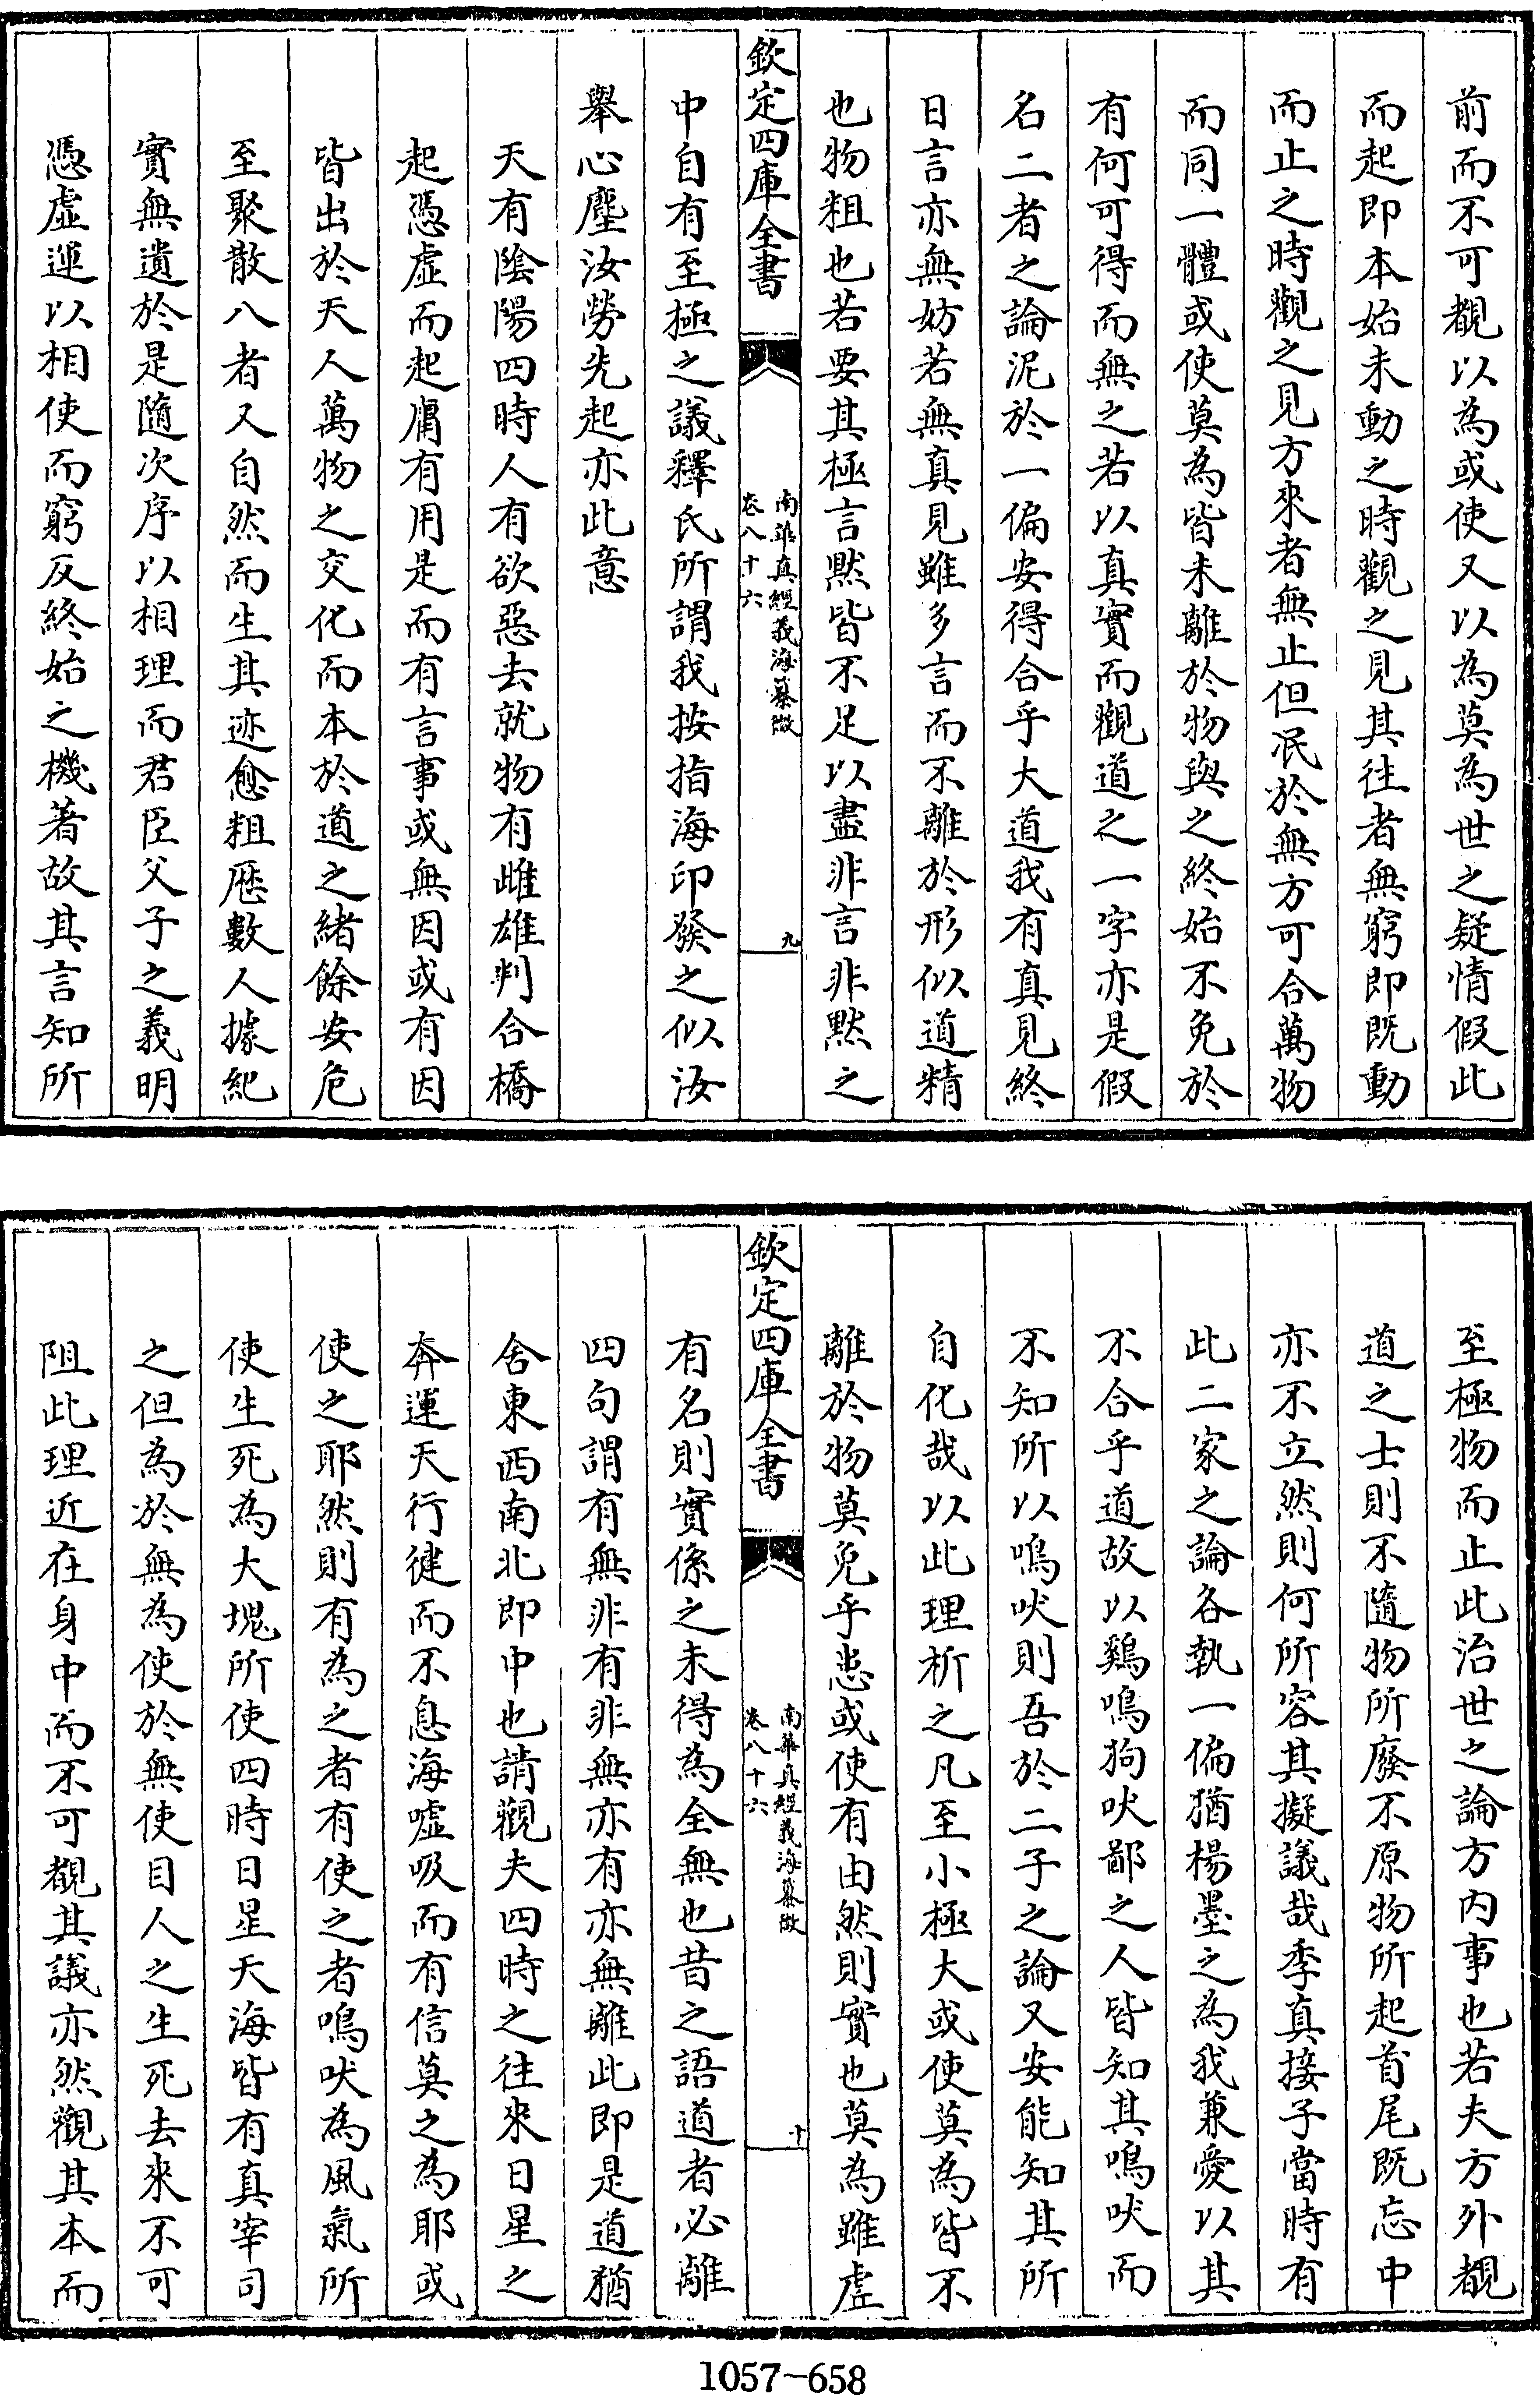 前而不可覩以為或使又以為莫為世之疑情假此
而起即本始未動之時觀之見其往者無窮即既動
而止之時觀之見方來者無止但泯於無方可合萬物
而同一體或使莫為皆未離於物與之終始不免於
有何可得而無之若以真實而觀道之一字亦是假
名二者之論泥於一偏安得合乎大道我有真見終
日言亦無妨若無真見雖多言而不離於形似道精
也物粗也若要其極言默皆不足以盡非言非默之
欽定四庫全書
南華真經義海纂微
卷八十六
九
中自有至極之議釋氏所謂我按指海印發之似汝
舉心塵汝勞先起亦此意
天有陰陽四時人有欲惡去就物有雌雄判合橋
起憑虛而起庸有用是而有言事或無因或有因
皆出於天人萬物之交化而本於道之緒餘安危
至聚散八者又自然而生其迹愈粗歷數人據紀
實無遺於是隨次序以相理而君臣父子之義明
憑虛運以相使而窮反終始之機著故其言知所
至極物而止此治世之論方内事也若夫方外覩
道之士則不隨物所廢不原物所起首尾既忘中
亦不立然則何所容其擬議哉季真接子當時有
此二家之論各執一偏猶楊墨之為我兼愛以其
不合乎道故以鷄鳴狗吠鄙之人皆知其鳴吠而
不知所以鳴吠則吾於二子之論又安能知其所
自化哉以此理析之凡至小極大或使莫為皆不
離於物莫免乎恚或使有由然則實也莫為雖虛
欽定四庫全書
南華真經義海纂微
卷八十六
十
有名則實係之未得為全無也昔之語道者必離
四句謂有無非有非無亦有亦無離此即是道猶
舍東西南北即中也請觀夫四時之往來日星之
奔運天行徤而不息海嘘吸而有信莫之為耶或
使之耶然則有為之者有使之者鳴吠為風氣所
使生死為大塊所使四時日星天海皆有真宰司
之但為於無為使於無使目人之生死去來不可
阻此理近在身中而不可覩其議亦然觀其本而
1057-658